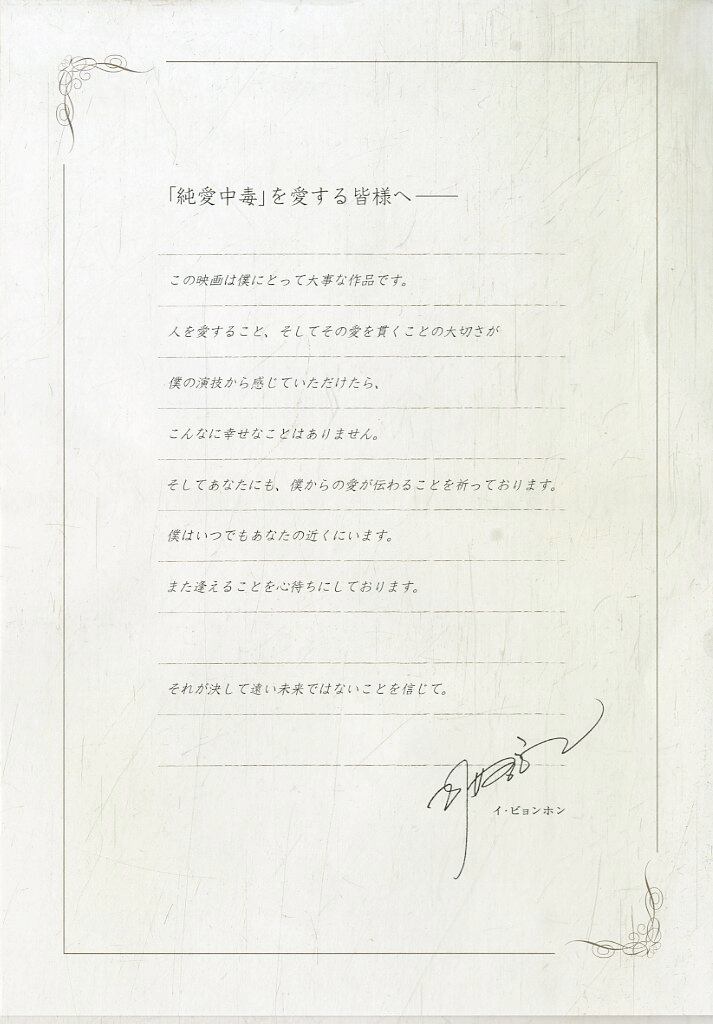 「純愛中毒」を愛する皆様へ――
この映画は僕にとって大事な作品です。
人を愛すること、そしてその愛を貫くことの大切さが
僕の演技から感じていただけたら、
こんなに幸せなことはありません。
そしてあなたにも、僕からの愛が伝わることを祈っております。
僕はいつでもあなたの近くにいます。
また逢えることを心待ちにしております。
それが決して遠い未来ではないことを信じて。
イ・ビョンホン